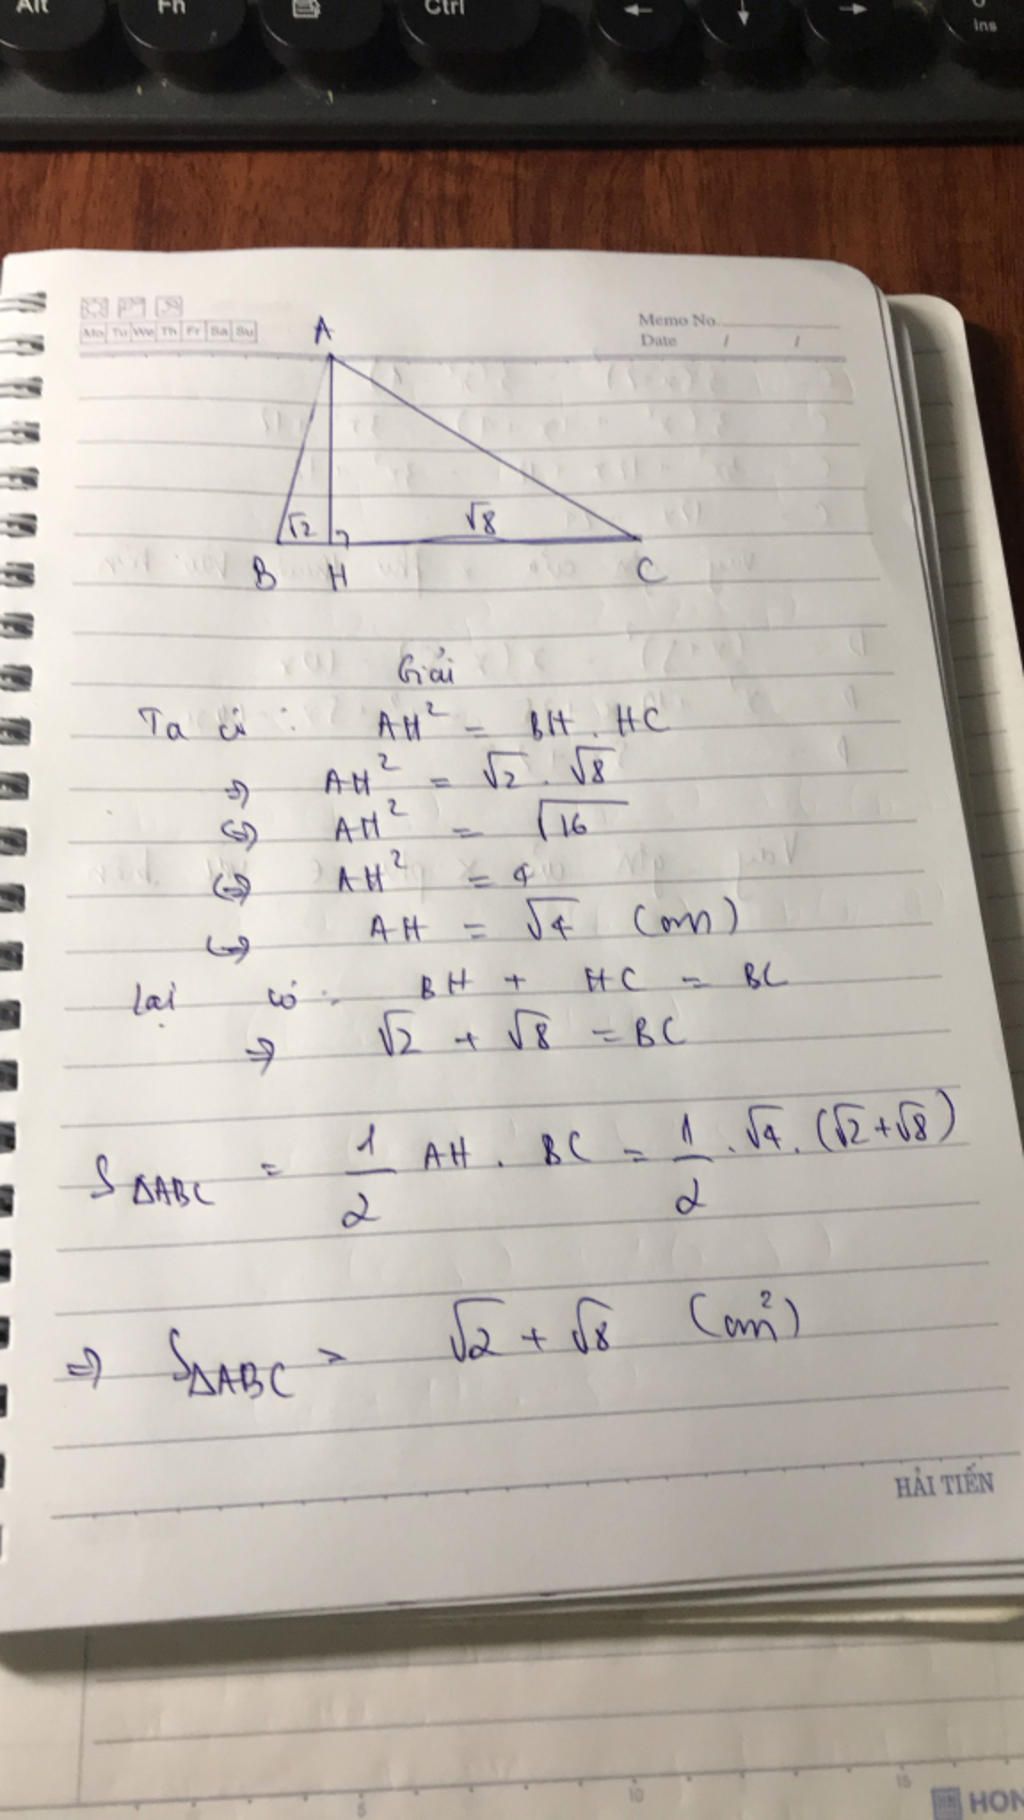 Alt Fn Ctrl ← ↓ → Ins
Mo Tu We Th Fr Sa Su
Memo No.
Date / /
A
√2 √8
B H C
Giải
Ta có : AH² = BH . HC
⇒ AH² = √2 . √8
⇔ AH² = √16
⇔ AH² = 4
⇔ AH = √4 (cm)
Lại có : BH + HC = BC
⇒ √2 + √8 = BC
S ΔABC = 1/2 AH . BC = 1/2 . √4 . (√2 + √8)
⇒ S ΔABC = √2 + √8 (cm²)
HẢI TIẾN
5 10 15
HON